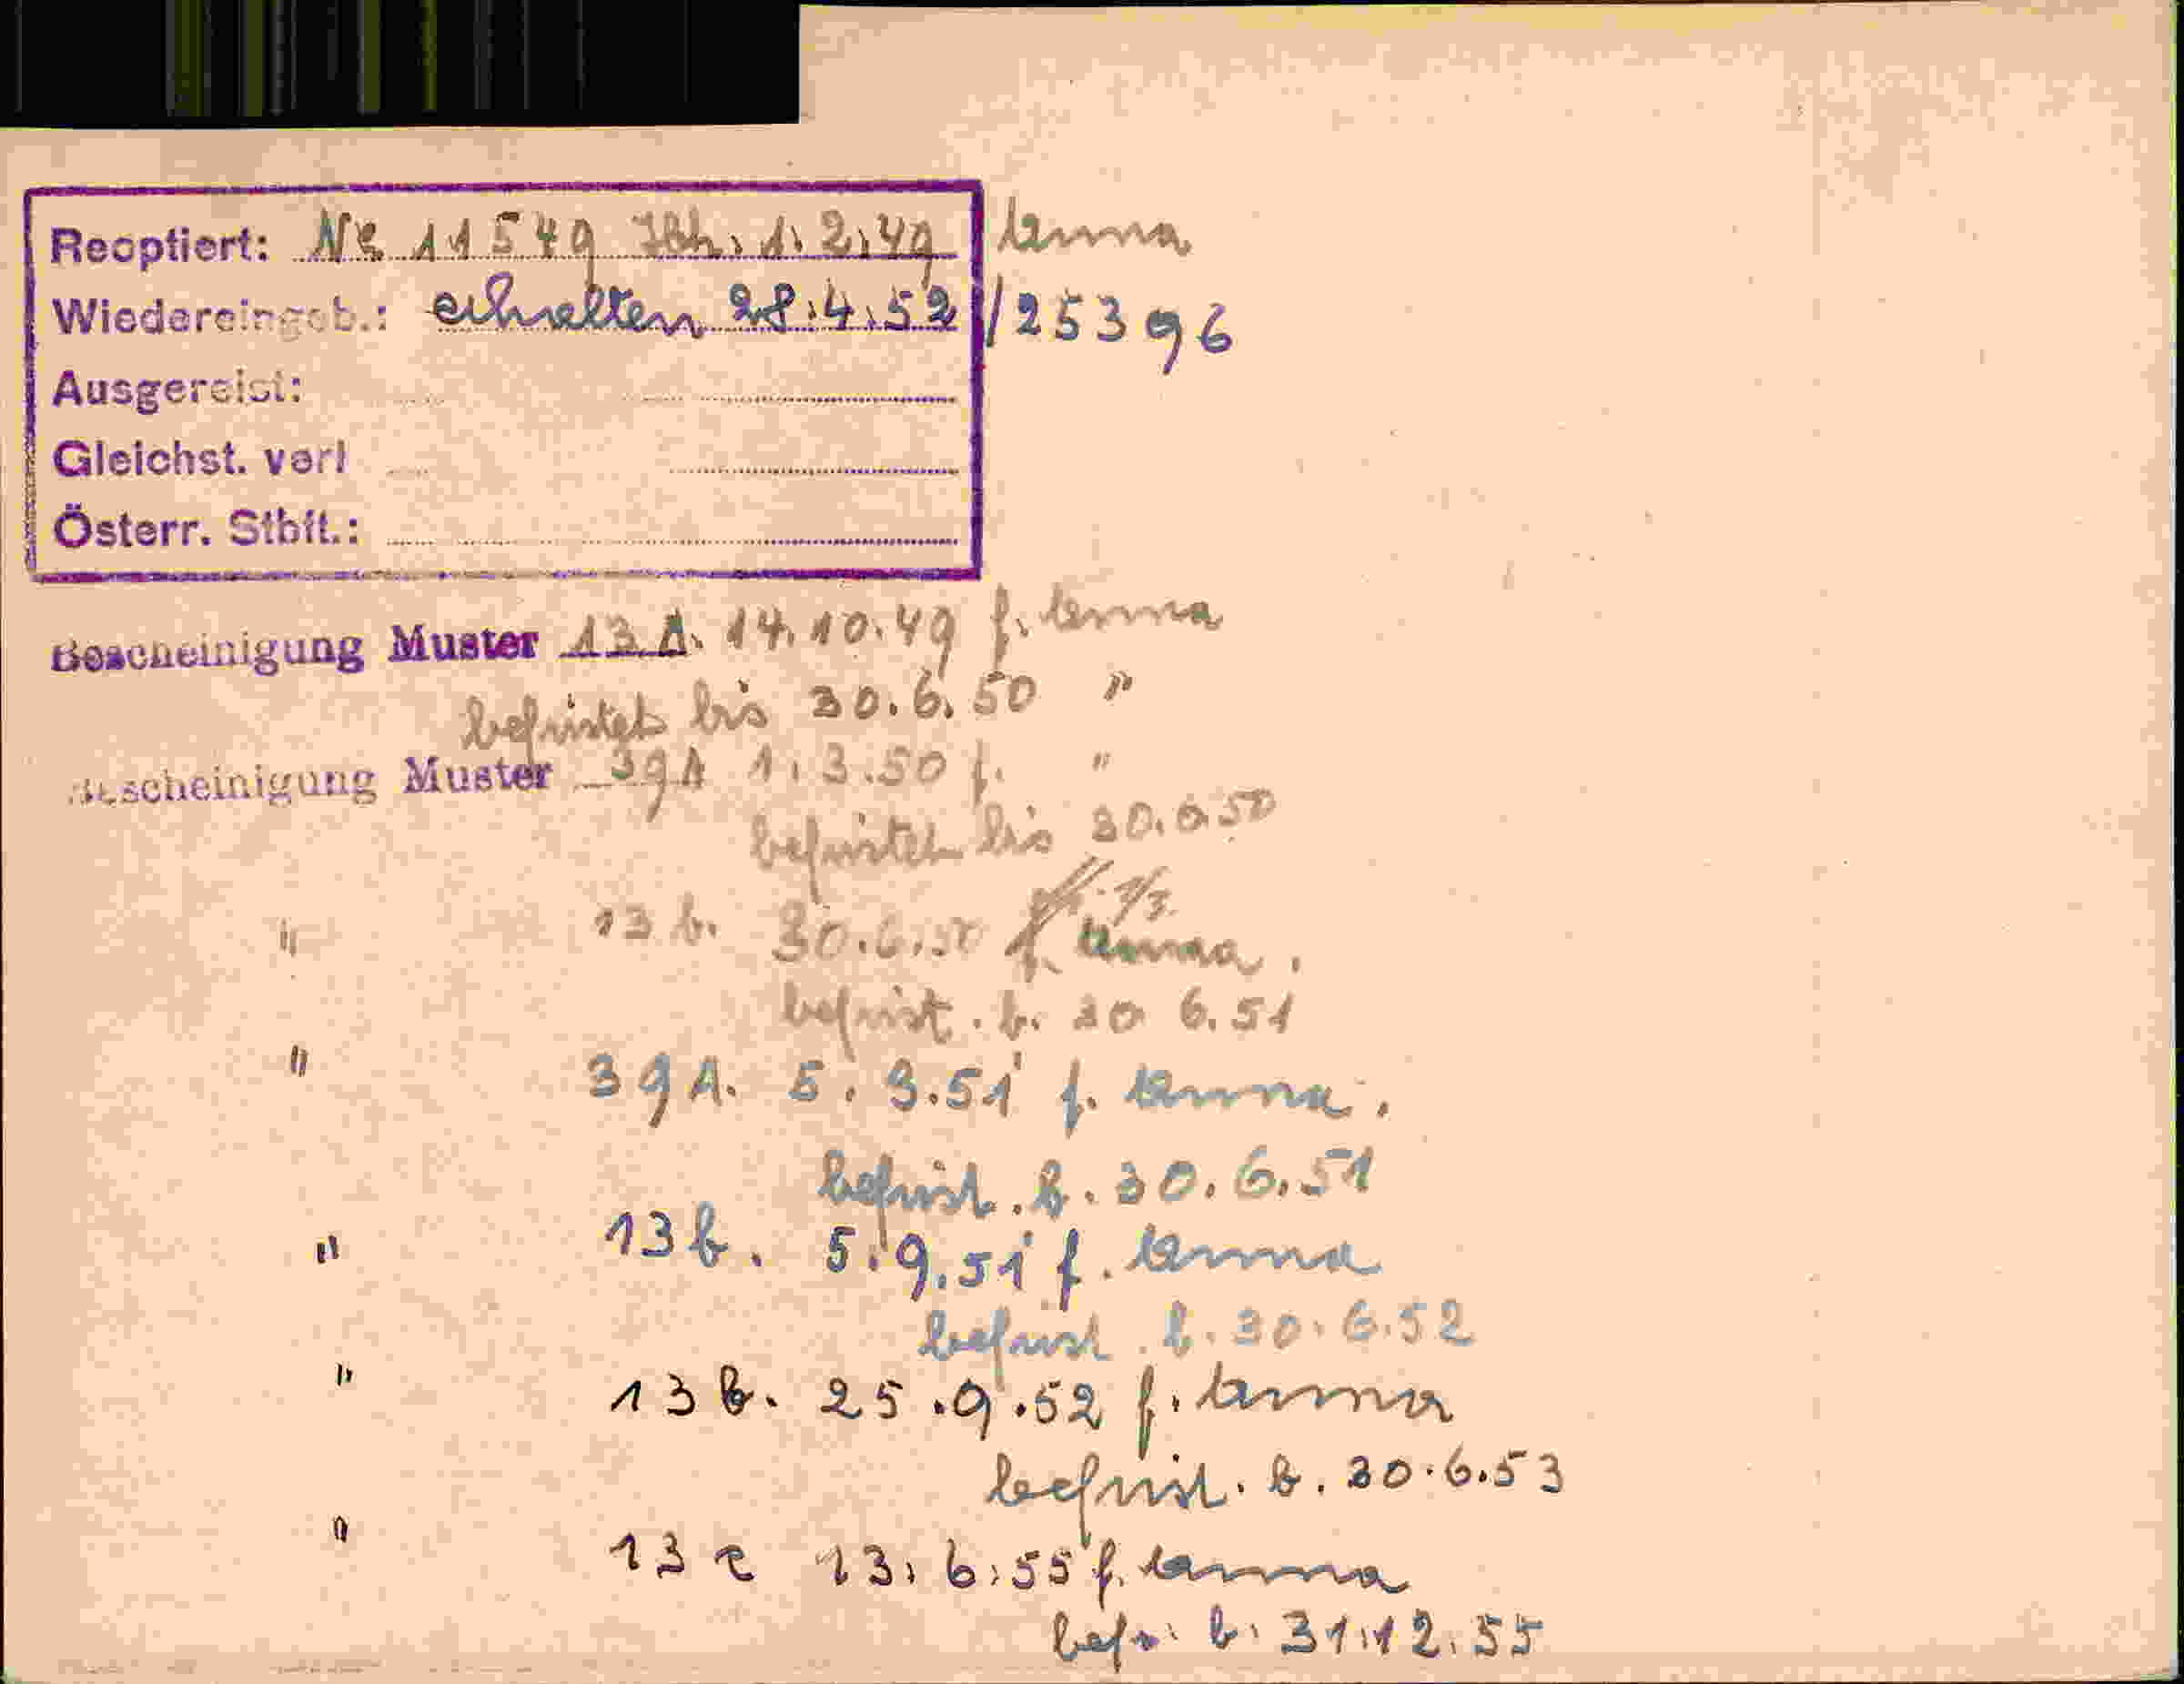 Reoptiert: Nr 11549 Ibk. 1.2.49 Anna
Wiedereingeb.: erhalten 28.4.52 / 25396
Ausgereist:
Gleichst. verl
Österr. Stbft.:
Bescheinigung Muster 13 A. 14.10.49 f. Anna
befristet bis 30.6.50 "
Bescheinigung Muster 39A 1.3.50 f. "
befristet bis 30.6.50
" 13 b. 30.6.50 f. Anna.
befrist. b. 30 6.51
" 39A. 5.3.51 f. Anna.
befrist. b. 30.6.51
" 13 b. 5.9.51 f. Anna
befrist. b. 30.6.52
" 13 b. 25.9.52 f. Anna
befrist. b. 30.6.53
" 13 c 13.6.55 f. Anna
befr. b. 31.12.55